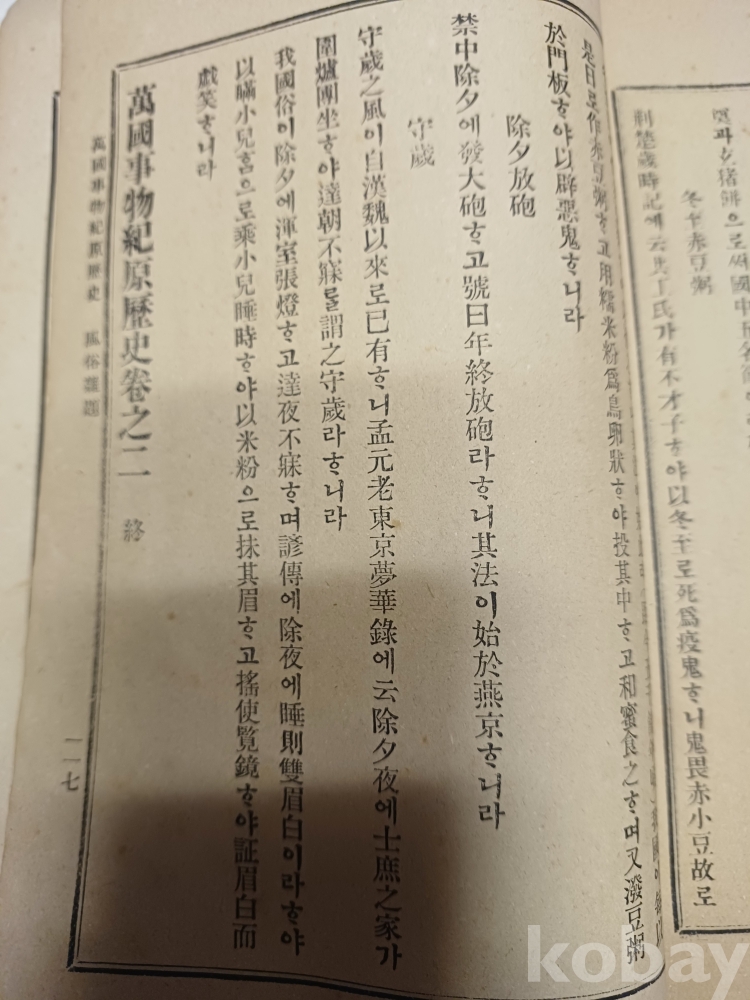 冬至赤豆粥
荊楚歲時記에云共工氏가有不才子ᄒᆞ야以冬至로死爲疫鬼ᄒᆞ니鬼畏赤小豆故로
作赤豆粥ᄒᆞ고用糯米粉爲鳥卵狀ᄒᆞ야投其中ᄒᆞ고和蜜食之ᄒᆞ며又潑豆粥
於門板ᄒᆞ야以辟惡鬼ᄒᆞ니라
除夕放砲
禁中除夕에發大砲ᄒᆞ고號曰年終放砲라ᄒᆞ니其法이始於燕京ᄒᆞ니라
守歲
守歲之風이自漢魏以來로已有ᄒᆞ니孟元老東京夢華錄에云除夕夜에士庶之家가
圍爐團坐ᄒᆞ야達朝不寐를謂之守歲라ᄒᆞ니라
我國俗이除夕에渾室張燈ᄒᆞ고達夜不寐ᄒᆞ며諺傳에除夜에睡則雙眉白이라ᄒᆞ야
以瞞小兒홈으로乘小兒睡時ᄒᆞ야以米粉으로抹其眉ᄒᆞ고搖使覽鏡ᄒᆞ야証眉白而
戱笑ᄒᆞ니라
萬國事物紀原歷史卷之二 終
萬國事物紀原歷史 風俗雜題
一一七
kobay